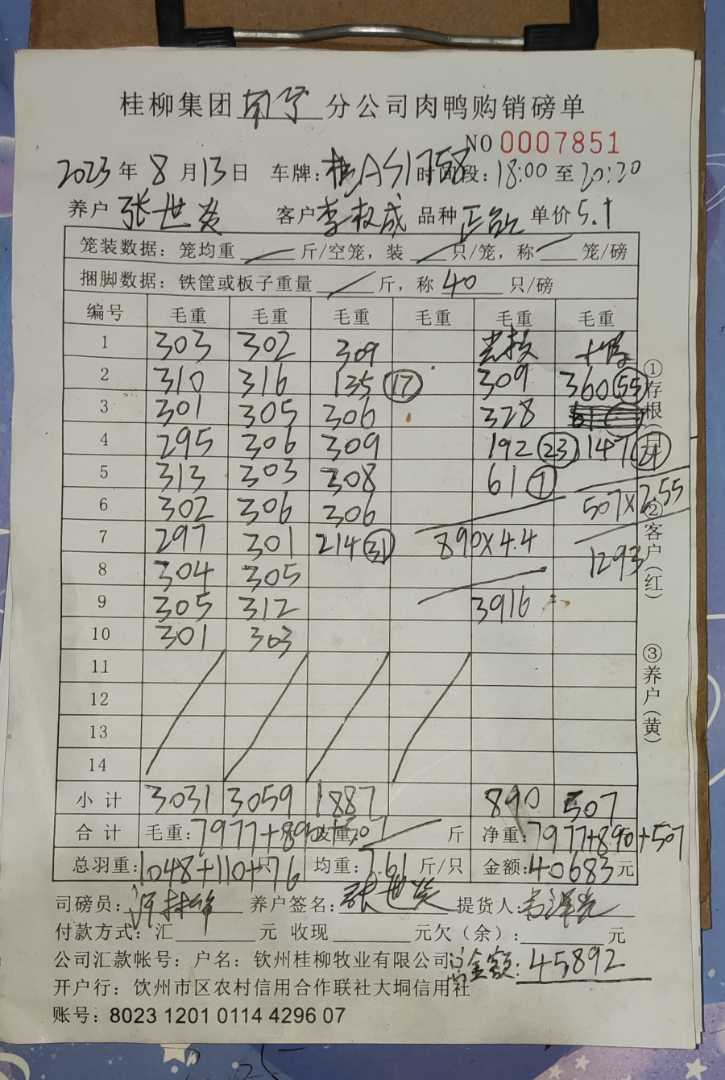 桂柳集团 南宁 分公司肉鸭购销磅单
NO 0007851
2023 年 8 月 13 日 车牌: 桂AS1758 时段: 18:00 至 20:20
养户 张世炎 客户 李权成 品种 单价 5.1
笼装数据: 笼均重 斤/空笼, 装 只/笼, 称 笼/磅
捆脚数据: 铁筐或板子重量 斤, 称 40 只/磅
编号 毛重 毛重 毛重 毛重 毛重 毛重
1 303 302 309
2 310 316 135 17 309 360 55
3 301 305 306 328
4 295 306 309 192 23 147 21
5 313 303 308 61 7
6 302 306 306 507×2.55
7 297 301 214 31 890×4.4
8 304 305 1293
9 305 312 3916
10 301 303
11
12
13
14
小计 3031 3059 1887 890 507
合计 毛重: 7977+890+507 斤 净重: 7977+890+507
总羽重: 1048+110+76 均重: 7.61 斤/只 金额: 40683 元
司磅员: 养户签名: 张世炎 提货人:
付款方式: 汇 元 收现 元欠(余): 元
公司汇款帐号: 户名: 钦州桂柳牧业有限公司 总金额: 45892
开户行: 饮州市区农村信用合作联社大垌信用社
账号: 8023 1201 0114 4296 07
①存根(白)
②客户(红)
③养户(黄)